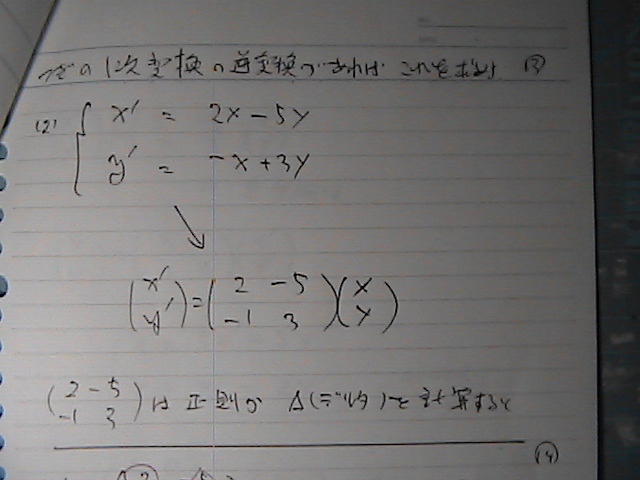 次の1次変換の逆変換があれば これを求めよ ⑬
(2) { x' = 2x - 5y
y' = -x + 3y
↘
(x' y') = (2 -5 -1 3)(x y)
(2 -5 -1 3) は正則か Δ(デルタ)を計算すると
⑭